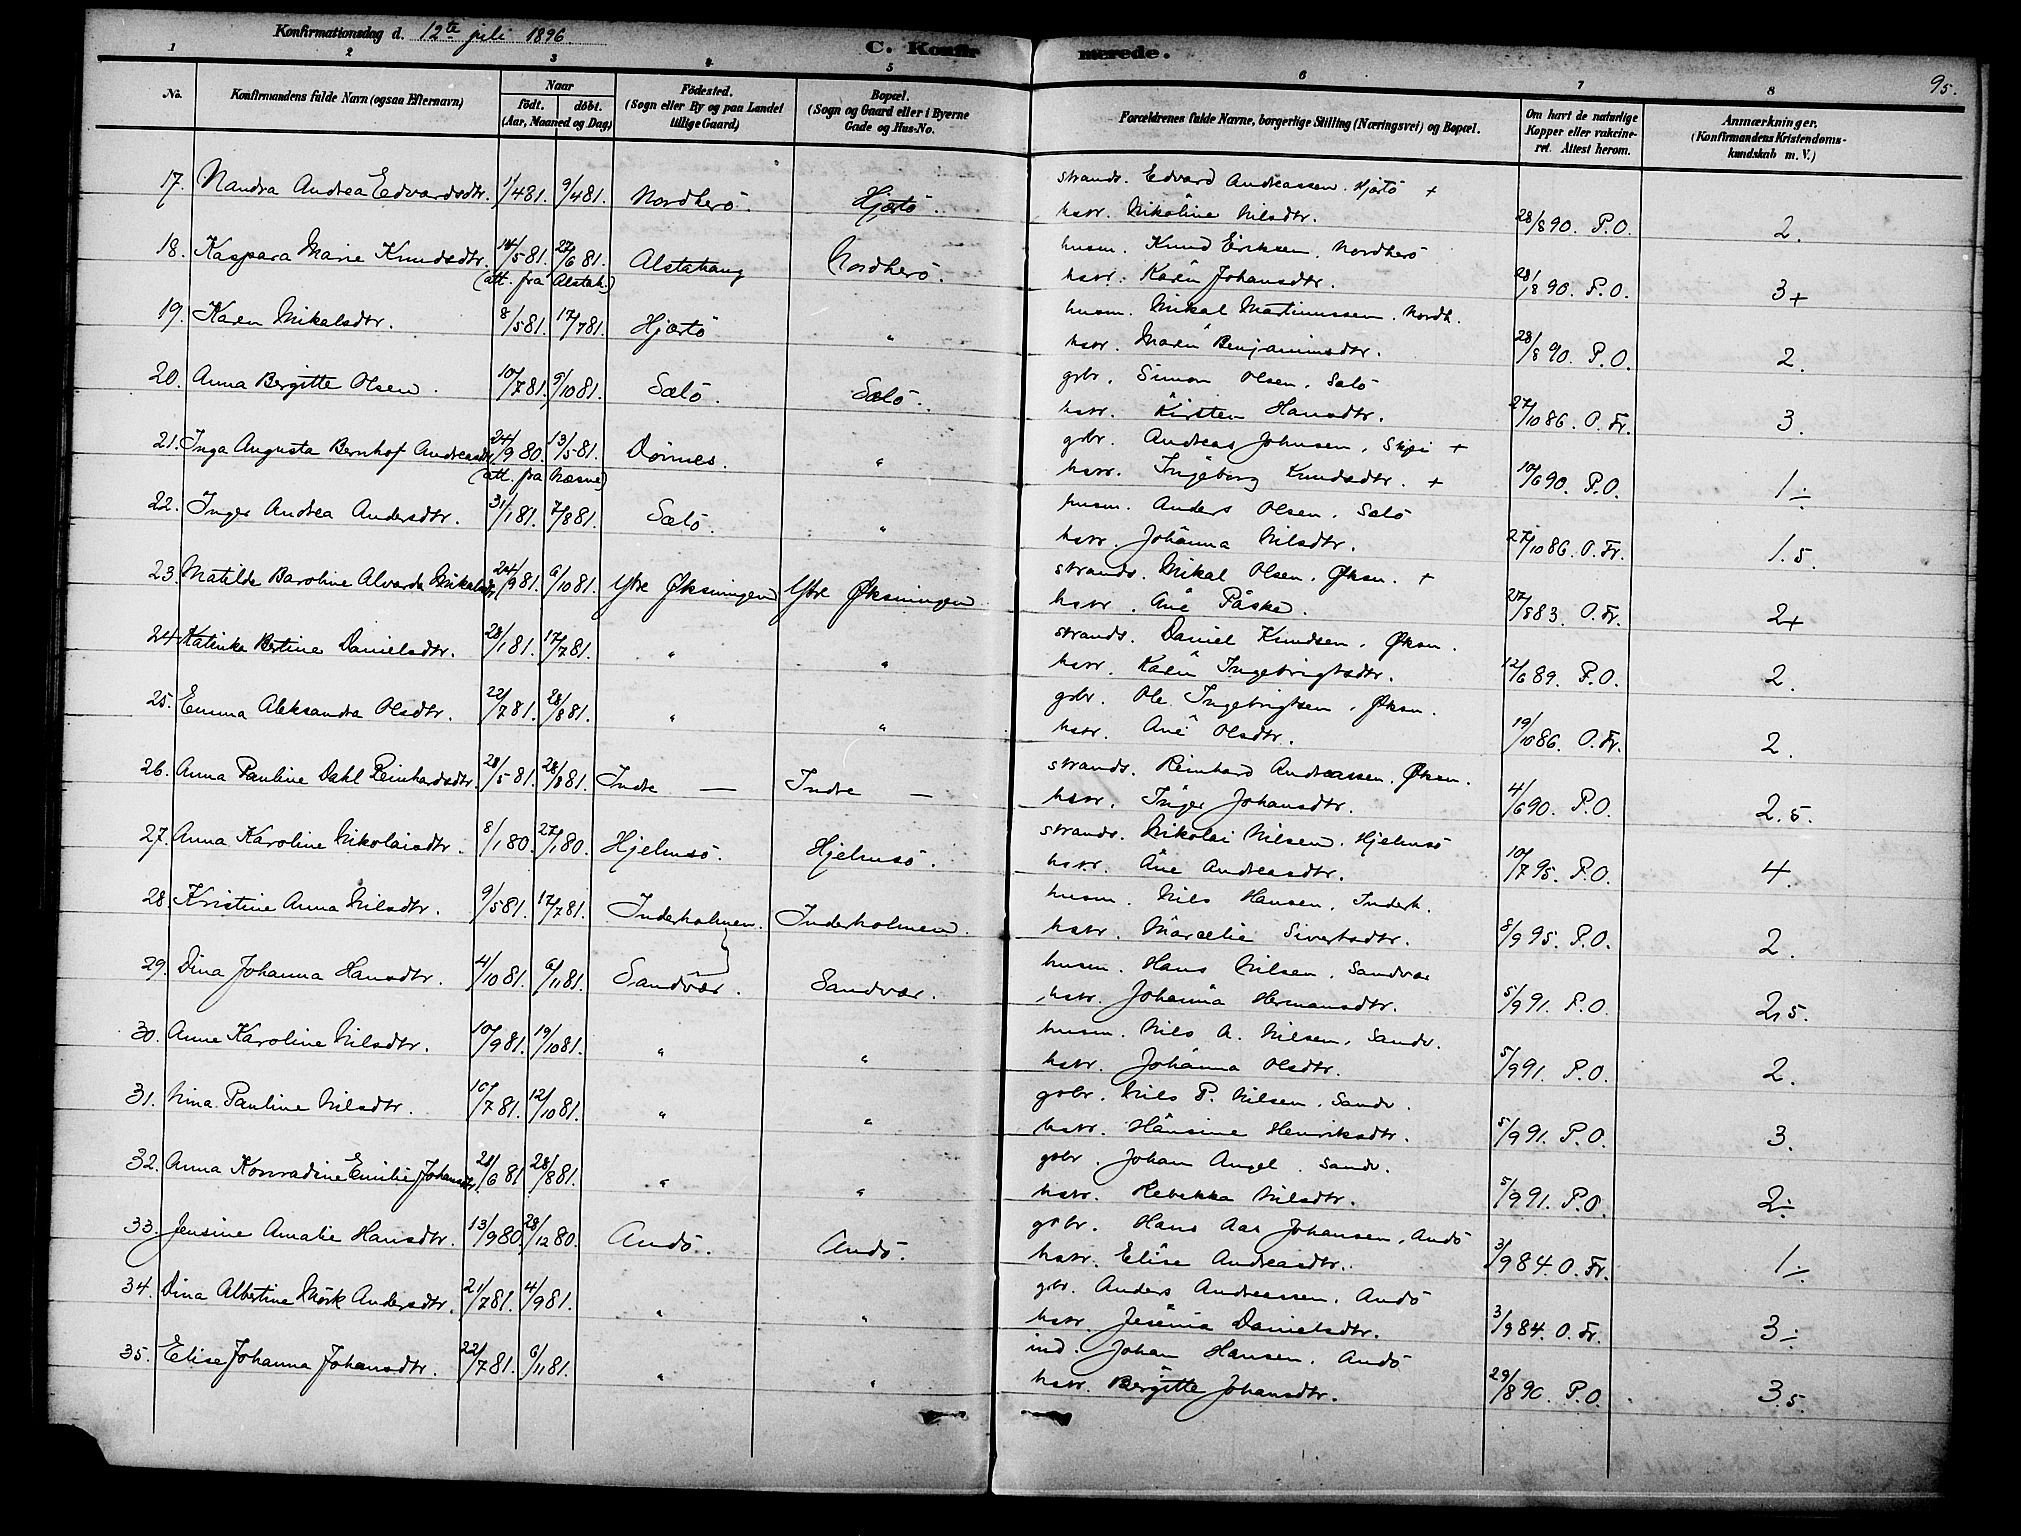 Konfirmationsdag d. 12te juli 1896.
C. Konfirmerede.
95.
1 2 3 4 5 6 7 8
No. Konfirmandens fulde Navn (ogsaa Efternavn) Naar født. døbt. (Aar, Maaned og Dag) Födested. (Sogn eller By og paa Landet tillige Gaard) Bopæl. (Sogn og Gaard eller i Byerne Gade og Hus-No. Forældrenes fulde Navne, borgerlige Stilling (Næringsvei) og Bopæl. Om havt de naturlige Kopper eller vakcineret. Attest herom. Anmærkninger. (Konfirmandens Kristendomskundskab m. V.)
17. Nandra Andrea Edvardsdtr. 1/4 81. 9/4 81. Nordherö. Hjartö. strands. Edvard Andreassen. Hjartö +
hstr. Nikoline Nilsdtr. 28/8 90. P.O. 2.
18. Kaspara Marie Knudsdtr. 14/5 81. 27/6 81. Alstahaug Nordherö. husm. Knud Eriksen, Nordherö
(att. fra Alstah.) hstr. Karen Johansdtr. 28/8 90. P.O. 3+
19. Karen Mikalsdtr. 8/5 81. 17/7 81. Hjartö " husm. Mikal Martinussen, Nordh.
hstr. Maren Benjaminsdtr. 28/8 90. P.O. 2.
20. Anna Bergitte Olsen. 10/7 81. 9/10 81. Sælö. Sælö. gbr. Simon Olsen, Sælö
hstr. Kirsten Hansdtr. 27/10 86. O. Fr. 3.
21. Inga Augusta Bernhof Andreasdtr. 24/9 80. 13/5 81. Dønnes. " gbr. Andreas Johnsen, +
(att. fra Næsne) hstr. Ingeborg Knudsdtr. + 10/6 90. P.O. 1÷
22. Inger Andrea Andersdtr. 31/1 81. 7/8 81. Sælö. " husm. Anders Olsen, Sælö
hstr. Johanna Nilsdtr. 27/10 86. O. Fr. 1.5.
23. Matilde Baroline Alvarda Mikalsdtr. 24/9 81. 6/10 81. Ytre Øksningen Ytre Øksningen strands. Mikal Olsen, Øksn. +
hstr. Ane Påske. 27/8 83. O. Fr. 2+
24. Katinka Bertine Danielsdtr. 28/1 81. 17/7 81. " " strands. Daniel Knudsen, Øksn.
hstr. Karen Ingebrigtsdtr. 12/6 89. P.O. 2.
25. Emma Aleksandra Olsdtr. 22/7 81. 28/8 81. " " gbr. Ole Ingebrigtsen, Øksn.
hstr. Ane Olsdtr. 19/10 86. O. Fr. 2.
26. Anna Pauline Dahl Reinhardsdtr. 28/5 81. 28/8 81. Indre — Indre — strands. Reinhard Andreassen, Øksn.
hstr. Inger Johansdtr. 4/6 90. P.O. 2.5.
27. Anna Karoline Nikolaisdtr. 8/1 80. 27/1 80. Hjelmsö. Hjelmsö. strands. Nikolai Nilsen, Hjelmsö
hstr. Ane Andreasdtr. 10/7 95. P.O. 4.
28. Kristine Anna Nilsdtr. 9/5 81. 17/7 81. Inderholmen. Inderholmen. husm. Nils Hansen, Inderh.
hstr. Marcelie Sivertsdtr. 8/9 95. P.O. 2.
29. Dina Johanna Hansdtr. 4/10 81. 6/11 81. Sandvær. Sandvær. husm. Hans Nilsen, Sandvær
hstr. Johanna Hermansdtr. 5/9 91. P.O. 2,5.
30. Anne Karoline Nilsdtr. 10/9 81. 19/10 81. " " husm. Nils A. Nilsen, Sandv.
hstr. Johanna Olsdtr. 5/9 91. P.O. 2.
31. Nina Pauline Nilsdtr. 10/7 81. 12/10 81. " " gbr. Nils P. Nilsen, Sandv.
hstr. Hansine Henriksdtr. 5/9 91. P.O. 3.
32. Anna Konradine Emilie Johansdtr. 21/6 81 28/8 81. " " gbr. Johan Angel, Sandv.
hstr. Rebekka Nilsdtr. 5/9 91. P.O. 2÷
33. Jensine Amalie Hansdtr. 13/9 80. 28/12 80. Andö. Andö. gbr. Hans Aas Johansen, Andö
hstr. Elise Andreasdtr. 3/9 84. O. Fr. 1÷
34. Dina Albertine Mörk Andersdtr. 21/7 81. 4/9 81. " " gbr. Anders Andreassen, Andö
hstr. Jesenia Danielsdtr. 3/9 84. O. Fr. 3÷
35. Elise Johanna Johansdtr. 22/7 81. 6/11 81. " " ind. Johan Hansen, Andö
hstr. Bergitte Johansdtr. 29/8 90. P.O. 3.5.